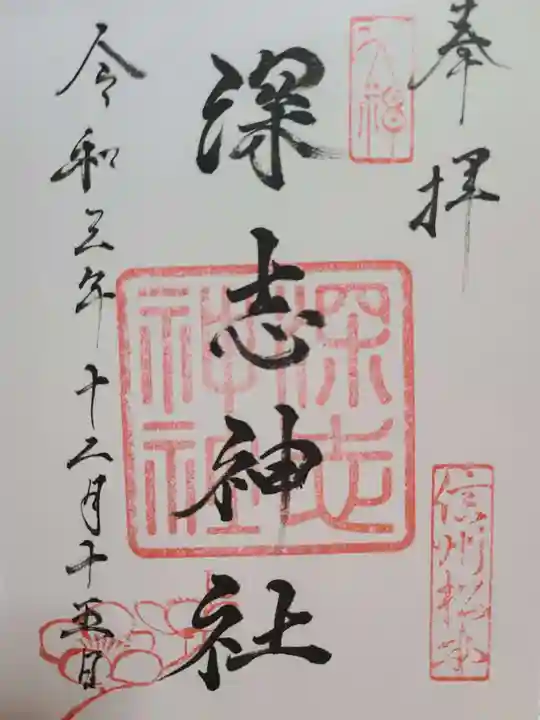 奉拝
深志神社
深志
神社
信州松本
令和三年十二月十五日